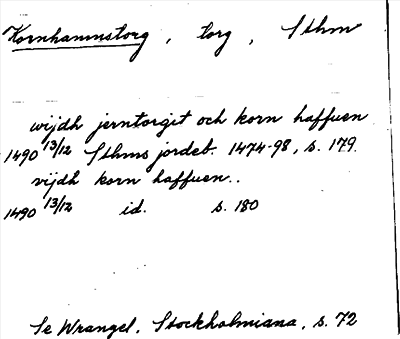 Kornhamnstorg, torg, Sthm
wijdh jerntorgit och korn haffuen
1490 13/12 Sthms jordeb. 1474-98, s. 179.
vijdh korn haffuen..
1490 13/12 id. s. 180
Se Wrangel, Stockholmiana, s. 72